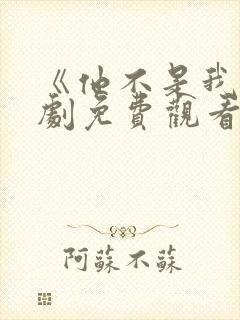 《他不是我
劇免費觀看
阿蘇不蘇